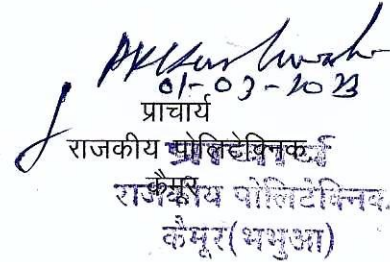 01-03-2023
प्राचार्य
राजकीय पोलिटेक्निक
कैमूर
प्राचार्य
राजकीय पोलिटेक्निक
कैमूर(भभुआ)